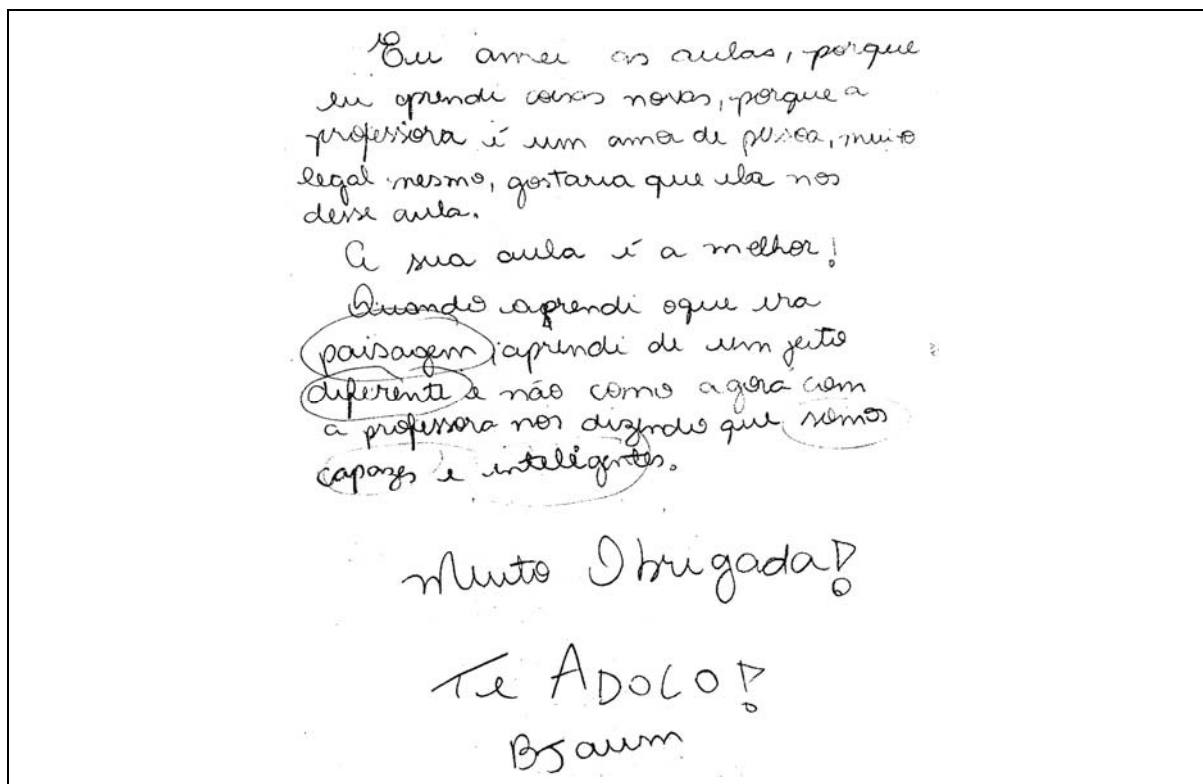 Eu amei as aulas, porque
eu aprendi coisas novas, porque a
professora é um amor de pessoa, muito
legal mesmo, gostaria que ela nos
desse aula.
A sua aula é a melhor!
Quando aprendi oque era
paisagem, aprendi de um jeito
diferente e não como agora com
a professora nos dizendo que somos
capazes e inteligentes.
Muito Obrigada!
Te ADOLO!
BJaum